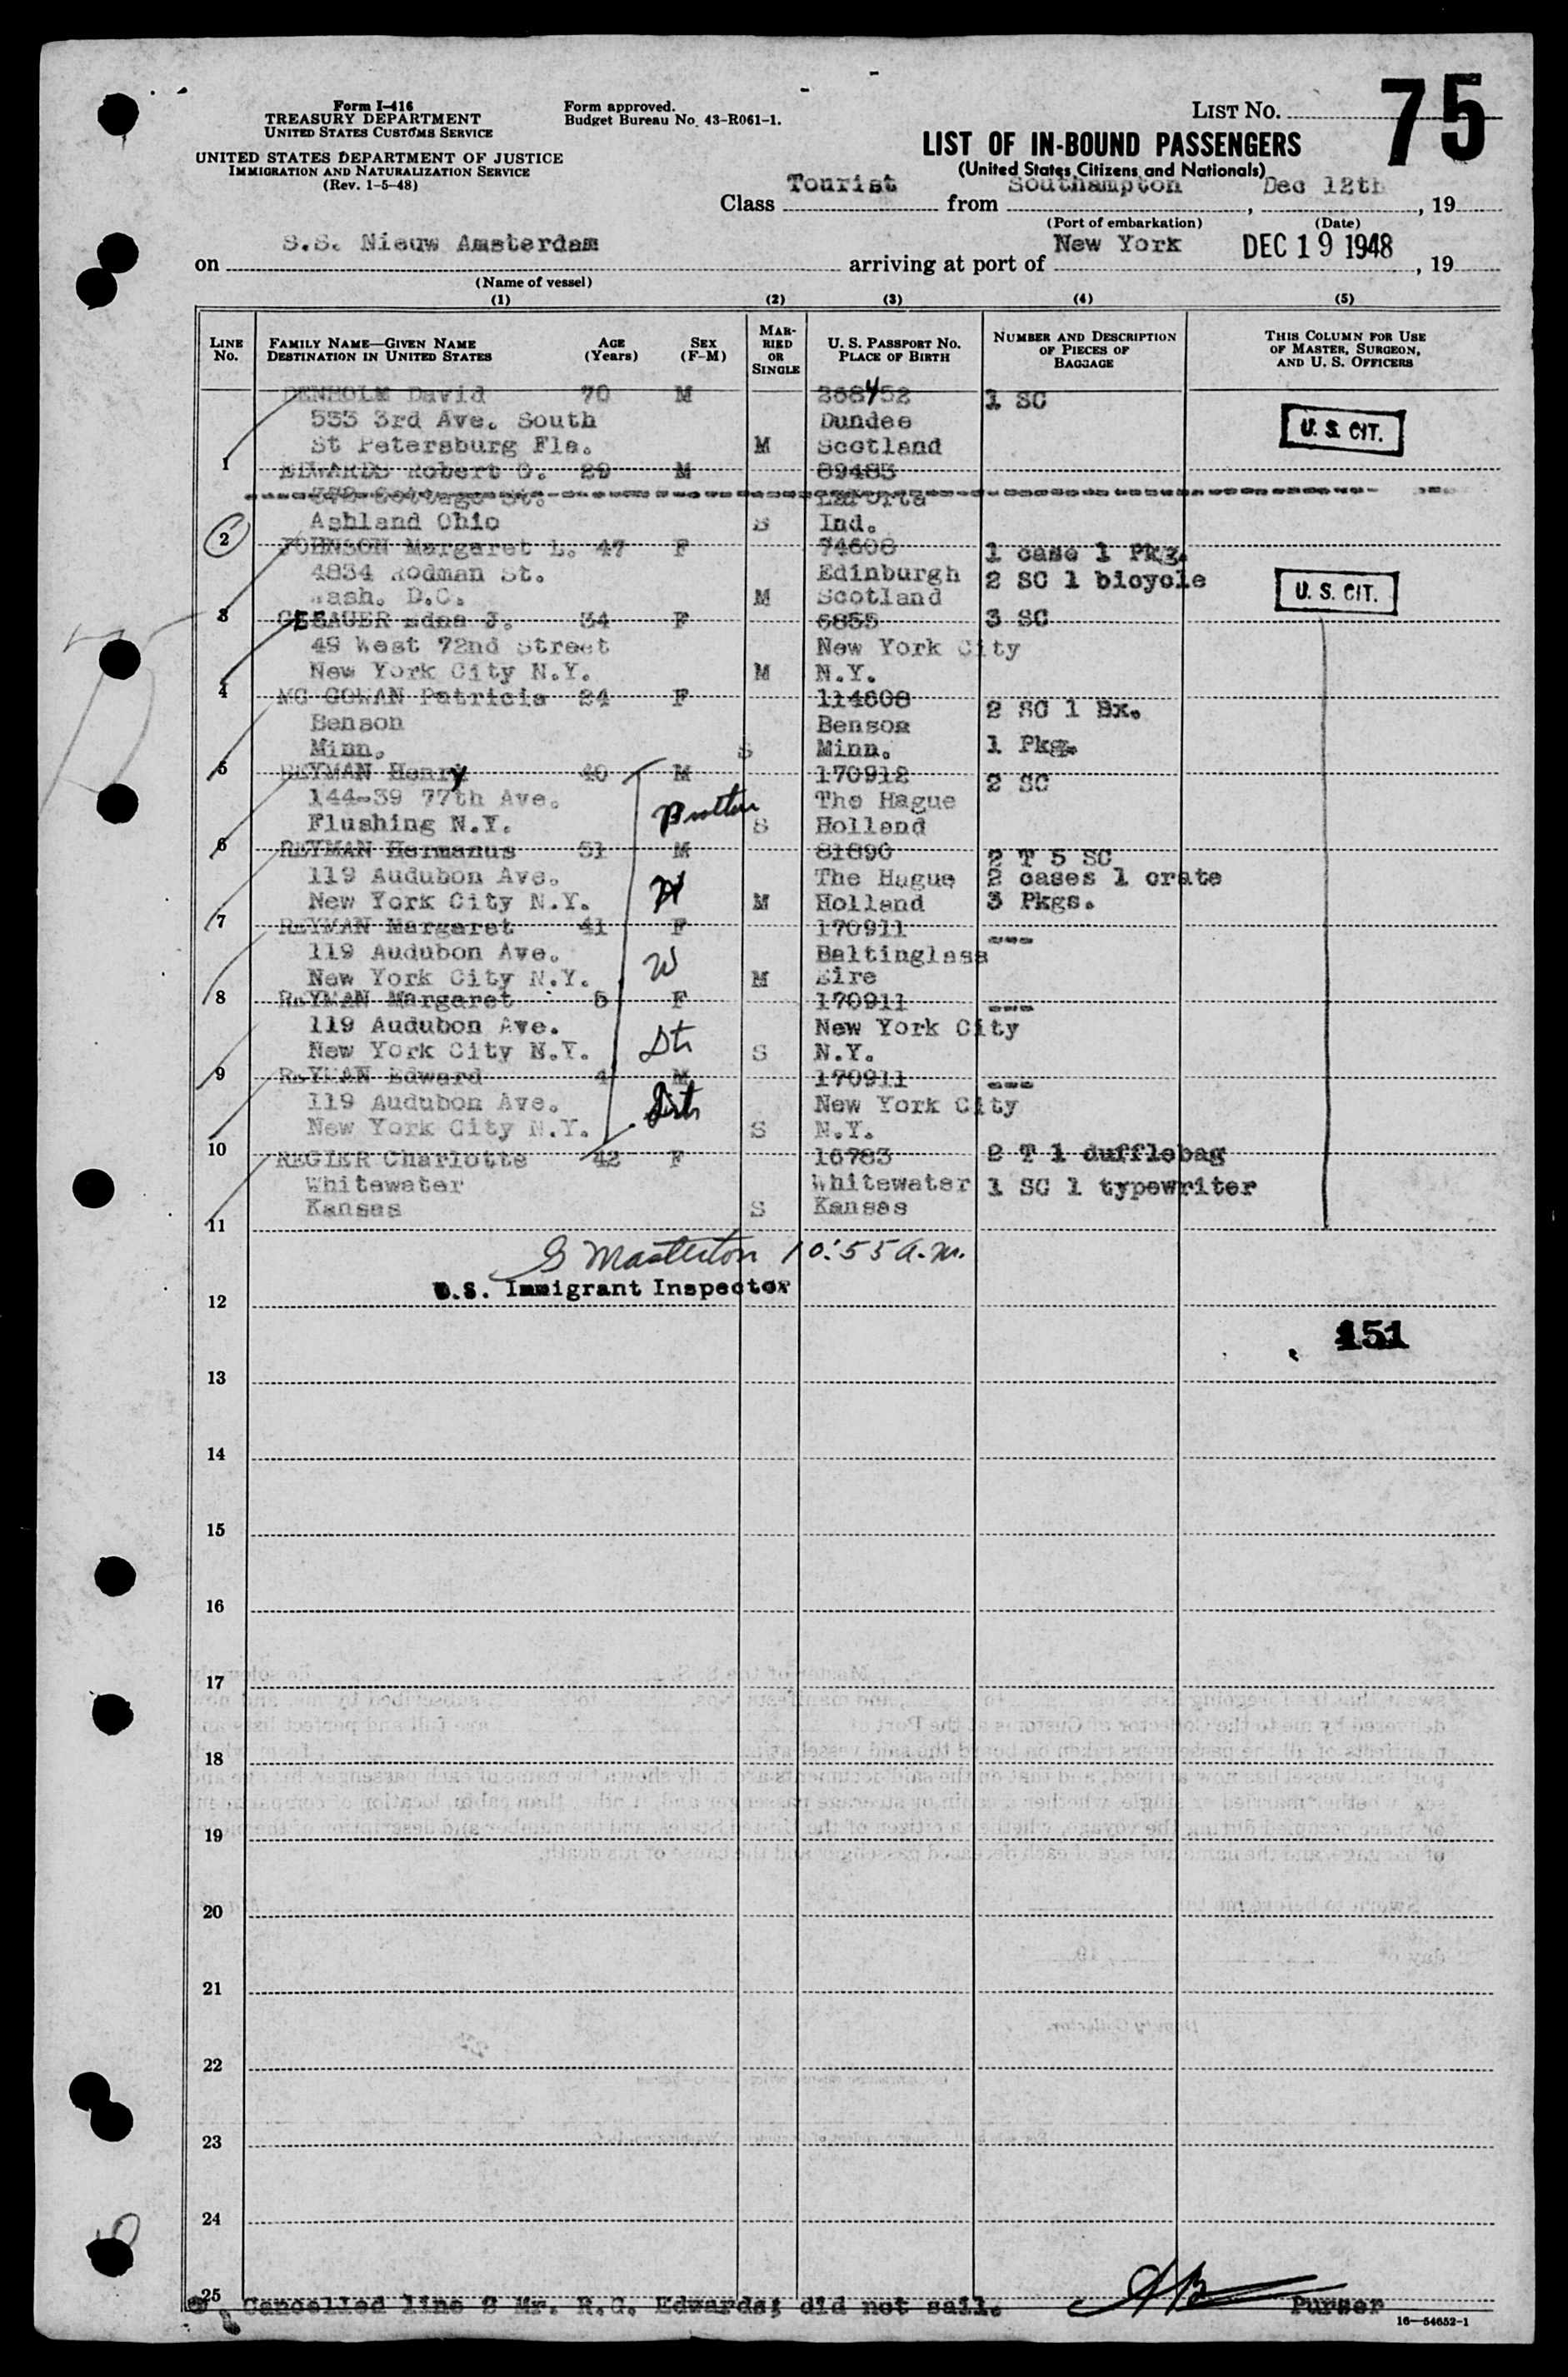 Form I-416
TREASURY DEPARTMENT
UNITED STATES CUSTOMS SERVICE
UNITED STATES DEPARTMENT OF JUSTICE
IMMIGRATION AND NATURALIZATION SERVICE
(Rev. 1-5-48)
Form approved.
Budget Bureau No. 43-R061-1.
LIST No. 75
LIST OF IN-BOUND PASSENGERS
(United States Citizens and Nationals)
Class Tourist from Southampton, Dec 12th, 19
(Port of embarkation) (Date)
on S.S. Nieuw Amsterdam arriving at port of New York DEC 19 1948, 19
(Name of vessel)
(1) (2) (3) (4) (5)
LINE No. FAMILY NAME—GIVEN NAME DESTINATION IN UNITED STATES AGE (Years) SEX (F-M) MARRIED OR SINGLE U. S. PASSPORT No. PLACE OF BIRTH NUMBER AND DESCRIPTION OF PIECES OF BAGGAGE THIS COLUMN FOR USE OF MASTER, SURGEON, AND U. S. OFFICERS
DENHOLM David 70 M 368452 1 SC
533 3rd Ave. South Dundee U. S. CIT.
St Petersburg Fla. M Scotland
1 EDWARDS Robert G. 29 M 89483
Cottage St. LaPorta
Ashland Ohio S Ind.
2 JOHNSON Margaret L. 47 F 74608 1 case 1 Pkg.
4834 Rodman St. Edinburgh 2 SC 1 bicycle
Wash. D.C. M Scotland U. S. CIT.
3 GEBAUER Edna J. 34 F 6855 3 SC
49 West 72nd Street New York City
New York City N.Y. M N.Y.
4 MC GOWAN Patricia 24 F 114608 2 SC 1 Bx.
Benson Benson
Minn. S Minn. 1 Pkg.
5 REYMAN Henry 40 M 170912 2 SC
144-39 77th Ave. The Hague
Flushing N.Y. Brother S Holland
6 REYMAN Hermanus 51 M 81890 2 T 5 SC
119 Audubon Ave. The Hague 2 cases 1 crate
New York City N.Y. H M Holland 3 Pkgs.
7 REYMAN Margaret 41 F 170911 ---
119 Audubon Ave. Baltinglass
New York City N.Y. W M Eire
8 REYMAN Margaret 5 F 170911 ---
119 Audubon Ave. New York City
New York City N.Y. Dtr S N.Y.
9 REYMAN Edward 4 M 170911 ---
119 Audubon Ave. New York City
New York City N.Y. S N.Y.
10 REGIER Charlotte 42 F 16783 2 T 1 dufflebag
Whitewater Whitewater 1 SC 1 typewriter
Kansas S Kansas
11
G Masterton 10:55 a.m.
U.S. Immigrant Inspector
12
151
13
14
15
16
17
18
19
20
21
22
23
24
25
Cancelled line 2 Mr. R.G. Edwards; did not sail. Purser
16—54652-1